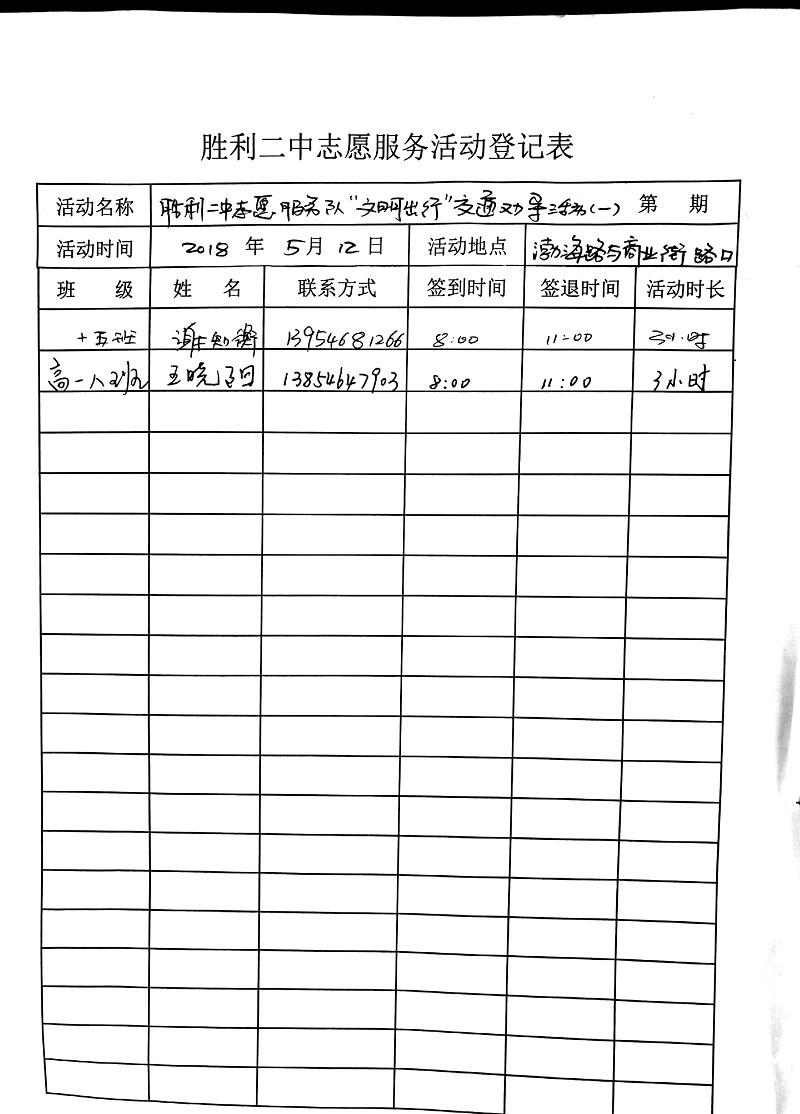 胜利二中志愿服务活动登记表
活动名称 胜利二中志愿服务队“文明出行”交通劝导活动(一) 第 期
活动时间 2018 年 5月 12 日 活动地点 渤海路与商业街路口
班 级 姓 名 联系方式 签到时间 签退时间 活动时长
十五班 谢知 13954681266 8:00 11:00 3小时
高一八班 王晓 13854647903 8:00 11:00 3小时